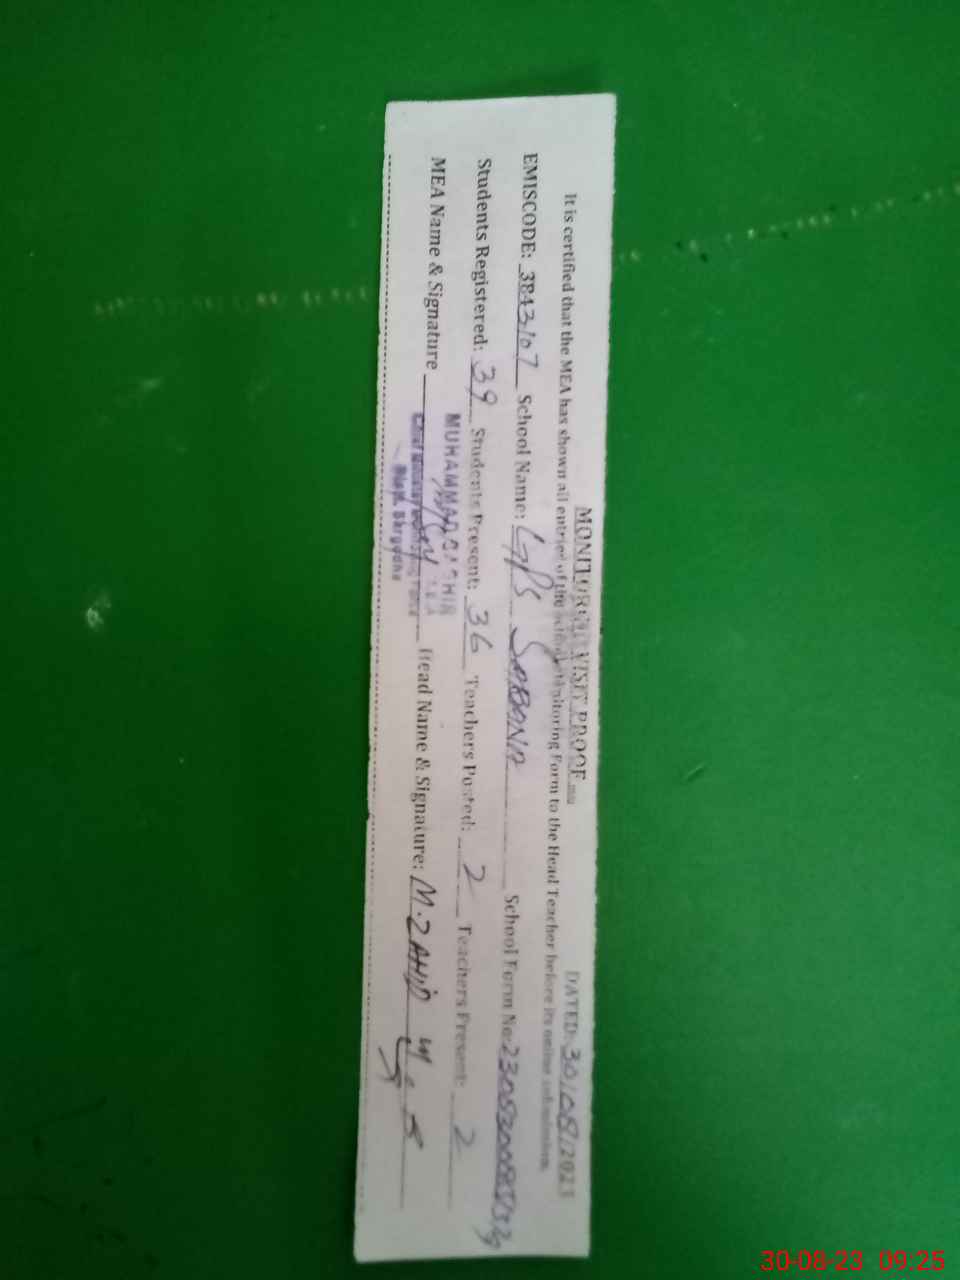 MONITORING VISIT PROOF DATED: 30/08/2023
It is certified that the MEA has shown all entries of the school Monitoring Form to the Head Teacher before its online submission.
EMISCODE: 3843107 School Name: GPS School Form No:
Students Registered: 39 Students Present: 36 Teachers Posted: 2 Teachers Present: 2
MUHAMMAD
MEA Name & Signature Head Name & Signature: M.ZAHID
Chief Minister Monitoring Force
Distt. Sargodha
30-08-23 09:25